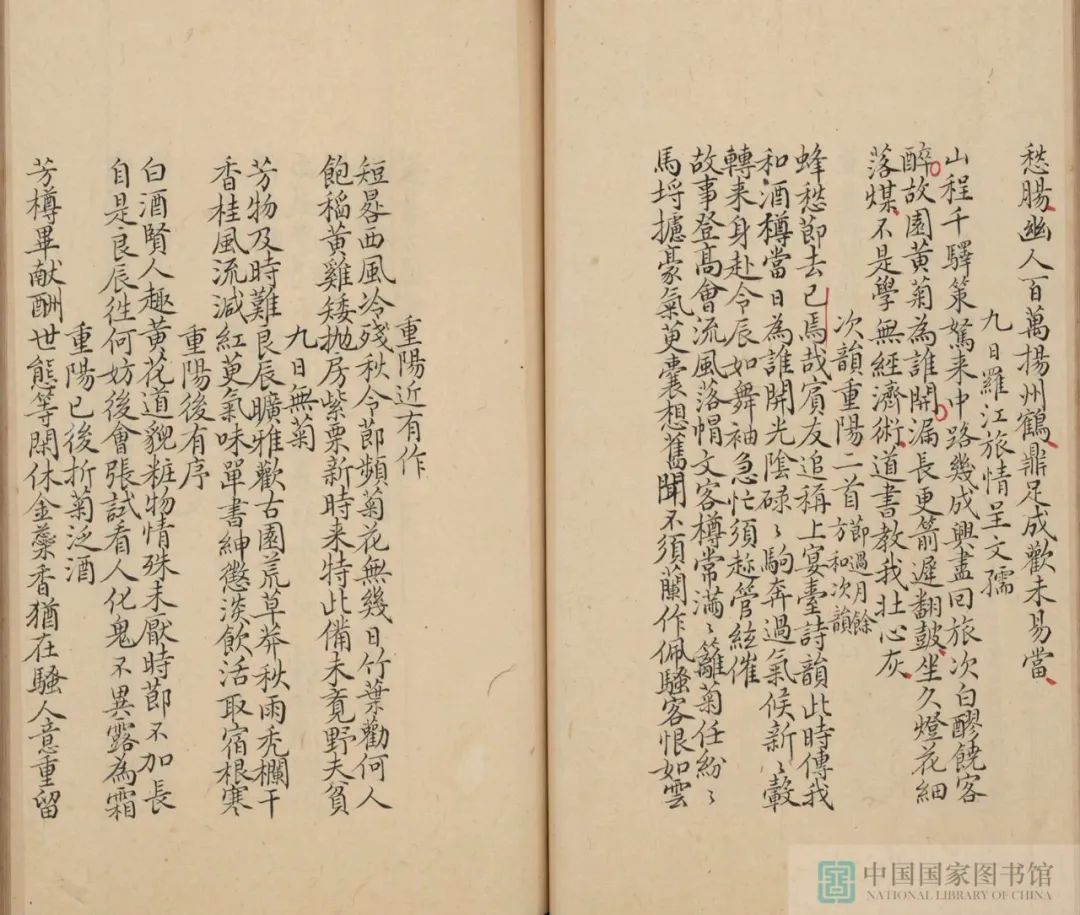 愁腸幽人百萬揚州鶴鼎足成歡未易當
九日羅江旅情呈文孺
山程千驛策駑来中路幾成興盡回旅次白醪饒客
醉故園黄菊為誰開漏長更箭遲翻皷坐久燈花細
落煤不是學無經濟術道書教我壯心灰
次韻重陽二首節過月餘方和次韻
蜂愁節去已焉哉賓友追稱上宴臺詩韻此時傳我
和酒樽當日為誰開光陰碌〻駒奔過氣候新〻轂
轉来身赴令辰如舞袖急忙須趂管絃催
故事登高會流風落帽文客樽常滿〻籬菊任紛〻
馬埒攄豪氣萸囊想舊聞不須蘭作佩騷客恨如雲
重陽近有作
短晷西風冷殘秋令節頻菊花無幾日竹葉勸何人
飽稻黄雞矮抛房紫栗新時来特此備未竟野夫貧
九日無菊
芳物及時難良辰曠雅歡古園荒草莽秋雨秃欄干
香桂風流減紅萸氣味單書紳懲淡飲活取宿根寒
重陽後有序
白酒賢人趣黄花道貌粧物情殊未厭時節不加長
自是良辰徃何妨後會張試看人化鬼不異露為霜
重陽已後折菊泛酒
芳樽畢献酬世態等閑休金蘂香猶在騷人意重留
中国国家图书馆
NATIONAL LIBRARY OF CHINA